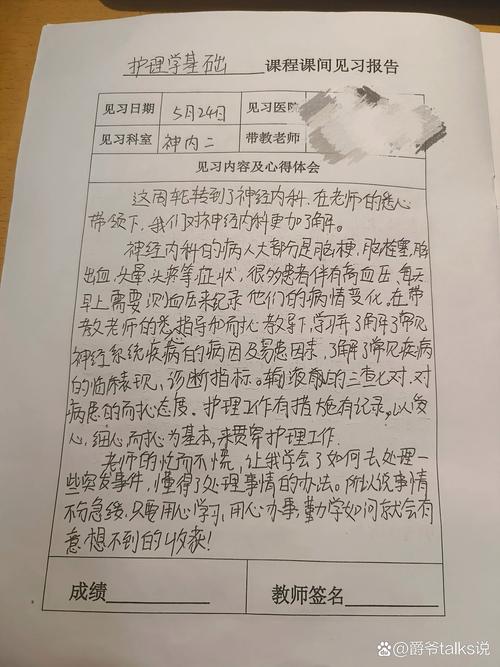 护理学基础 课程课间见习报告
见习日期 5月24日 见习医院
见习科室 神内二 带教老师
见习内容及心得体会
这周轮转到了神经内科.在老师的悉心
带领下,我们对神经内科更加了解。
神经内科的病人大部分是脑梗,脑栓塞,脑
出血,头晕,头疼等症状,很多患者伴有高血压、每天
早上需要测血压来纪录他们的病情变化。在带
教老师的悉指导和耐心教导下,学习并了解了常见
神经系统疾病的病因及易患因素,了解了常见疾病
的临床表现,诊断指标。输液前的三查七对.对
病患的耐心态度.护理工作有措施有记录,以爱
心,细心耐心为基本,来贯穿护理工作.
老师的忙而不慌,让我学会了如何去处理一
些突发事件,懂得了处理事情的办法。所以说事情
不分急缓,只要用心学习,用心办事,勤学如问就会有
意想不到的收获!
成绩 教师签名
@爵爷talks说